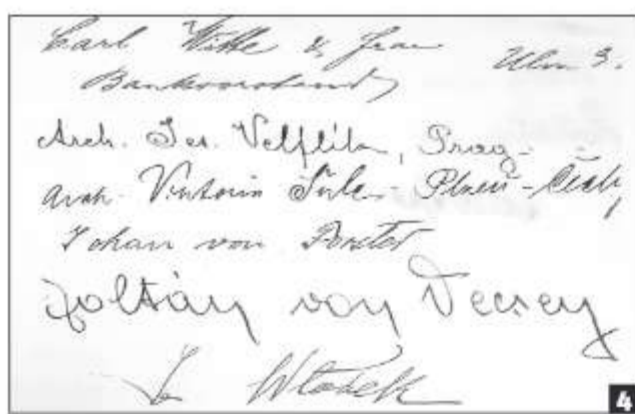 Carl Witke & Frau Ulm 3.
Bankvorstand
Arch. Jos. Velflík, Prag-
Arch. Viktorin Šulc - Plzeň - Čechy
Johan von
Zoltán von Decsey
Wlodek
4